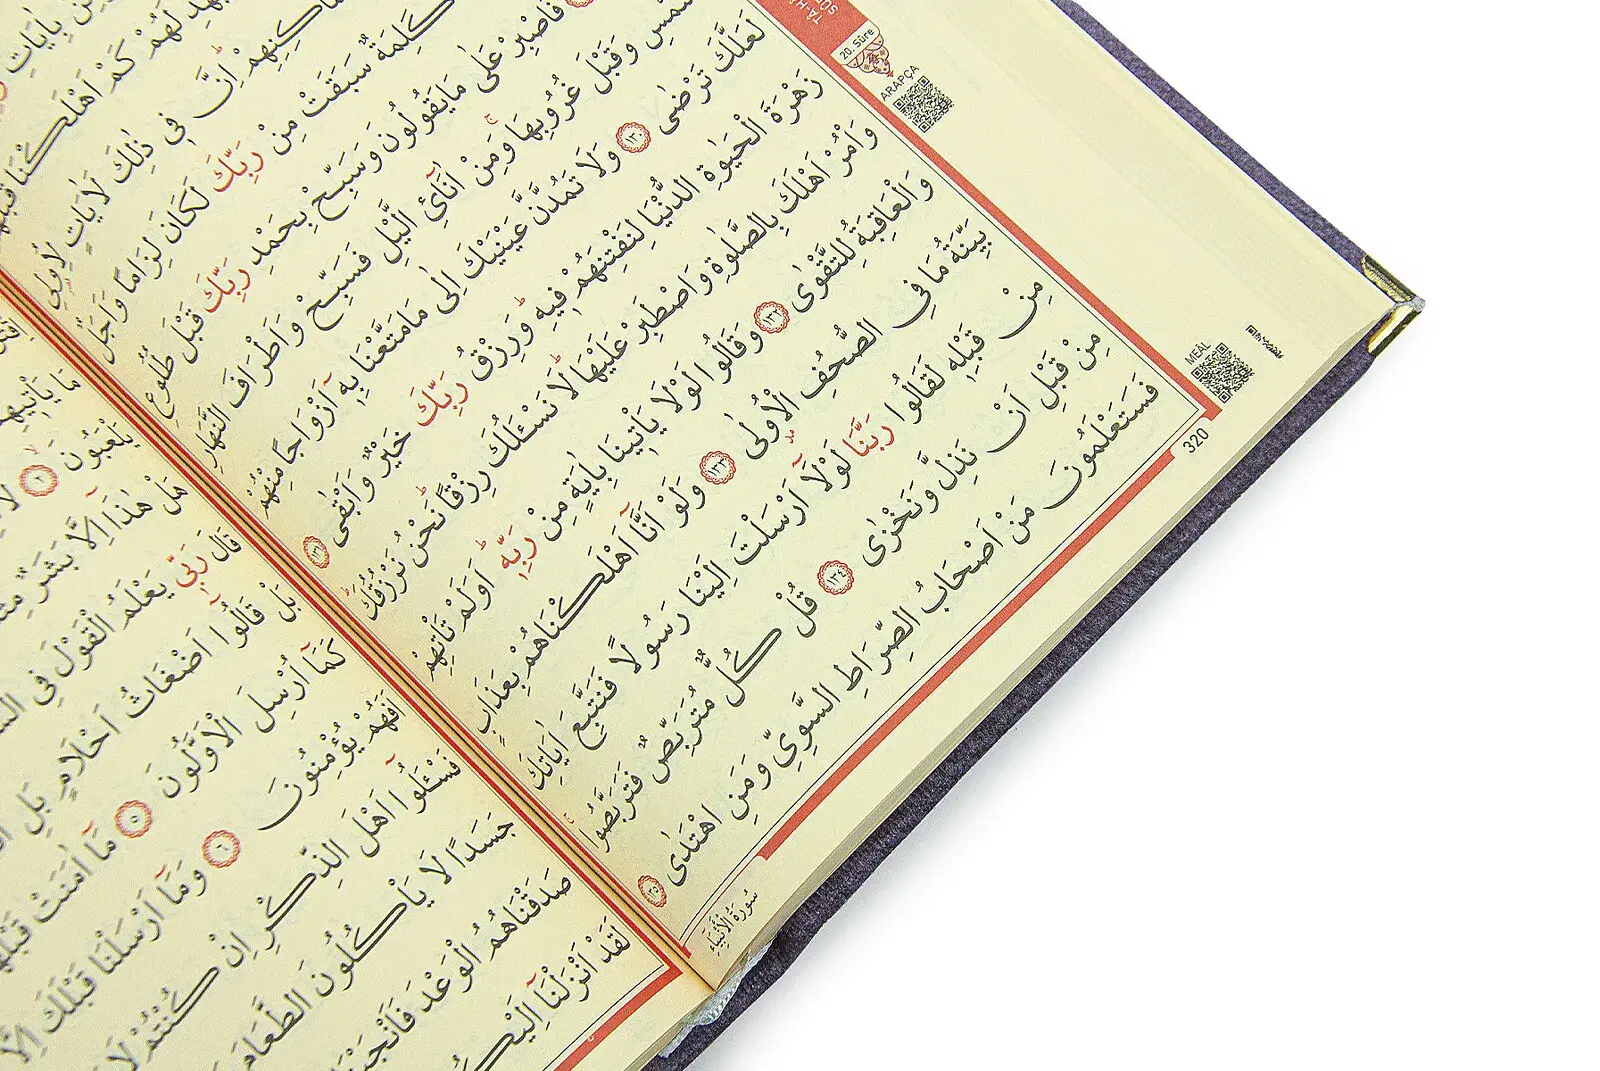 بِاٰيَاتِ
لَهُمْ كَمْ اَهْلَكْنَا
مَسَاكِنِهِمْ اِنَّ فِي ذٰلِكَ لَاٰيَاتٍ لِاُولِي
كَلِمَةٌ سَبَقَتْ مِنْ رَبِّكَ لَكَانَ لِزَامًا وَاَجَلٌ
فَاصْبِرْ عَلٰى مَايَقُولُونَ وَسَبِّحْ بِحَمْدِ رَبِّكَ قَبْلَ طُلُوعِ
وَقَبْلَ غُرُوبِهَا وَمِنْ اٰنَآئِ الَّيْلِ فَسَبِّحْ وَاَطْرَافَ النَّهَارِ
لَعَلَّكَ تَرْضٰى ١٣٠ وَلَا تَمُدَّنَّ عَيْنَيْكَ اِلٰى مَامَتَّعْنَا بِهٖٓ اَزْوَاجًا مِنْهُمْ
زَهْرَةَ الْحَيٰوةِ الدُّنْيَا لِنَفْتِنَهُمْ فِيهِ وَرِزْقُ رَبِّكَ خَيْرٌ وَاَبْقٰى ١٣١
وَاْمُرْ اَهْلَكَ بِالصَّلٰوةِ وَاصْطَبِرْ عَلَيْهَا لَا نَسْـَٔلُكَ رِزْقًا نَحْنُ نَرْزُقُكَ
وَالْعَاقِبَةُ لِلتَّقْوٰى ١٣٢ وَقَالُوا لَوْلَا يَاْتِينَا بِاٰيَةٍ مِنْ رَبِّهٖ اَوَلَمْ تَاْتِهِمْ
بَيِّنَةُ مَا فِي الصُّحُفِ الْاُولٰى ١٣٣ وَلَوْ اَنَّٓا اَهْلَكْنَاهُمْ بِعَذَابٍ
مِنْ قَبْلِهٖ لَقَالُوا رَبَّنَا لَوْلَٓا اَرْسَلْتَ اِلَيْنَا رَسُولًا فَنَتَّبِعَ اٰيَاتِكَ
مِنْ قَبْلِ اَنْ نَذِلَّ وَنَخْزٰى ١٣٤ قُلْ كُلٌّ مُتَرَبِّصٌ فَتَرَبَّصُوا
فَسَتَعْلَمُونَ مَنْ اَصْحَابُ الصِّرَاطِ السَّوِيِّ وَمَنِ اهْتَدٰى ١٣٥
سُورَةُ الْاَنْبِيَاءِ
20. Sûre
ARAPÇA
MEAL
320
مَا يَاْتِيهِمْ
يَلْعَبُونَ ٢
هَلْ هٰذَٓا اِلَّا بَشَرٌ
قَالَ رَبِّي يَعْلَمُ الْقَوْلَ فِي
بَلْ قَالُٓوا اَضْغَاثُ اَحْلَامٍ بَلِ
كَمَٓا اُرْسِلَ الْاَوَّلُونَ ٥ مَٓا اٰمَنَتْ
اَفَهُمْ يُؤْمِنُونَ ٦ وَمَٓا اَرْسَلْنَا قَبْلَكَ اِلَّا
فَسْـَٔلُٓوا اَهْلَ الذِّكْرِ اِنْ كُنْتُمْ لَا
جَسَدًا لَا يَاْكُلُونَ الطَّعَامَ
صَدَقْنَاهُمُ الْوَعْدَ
لَقَدْ اَنْزَلْنَٓا